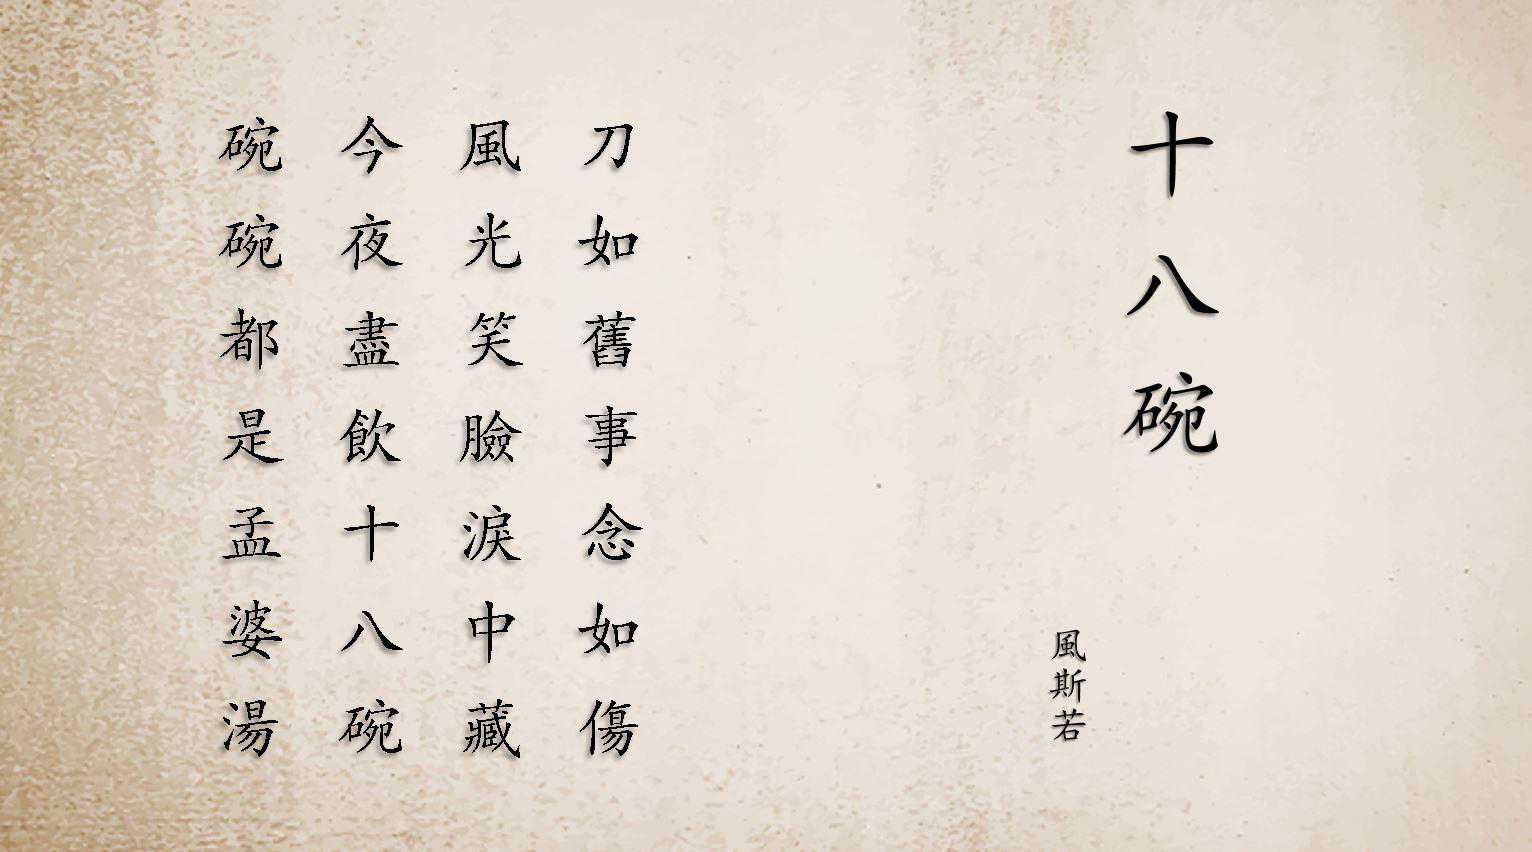 十八碗
風斯若
刀如舊事念如傷
風光笑臉淚中藏
今夜盡飲十八碗
碗碗都是孟婆湯